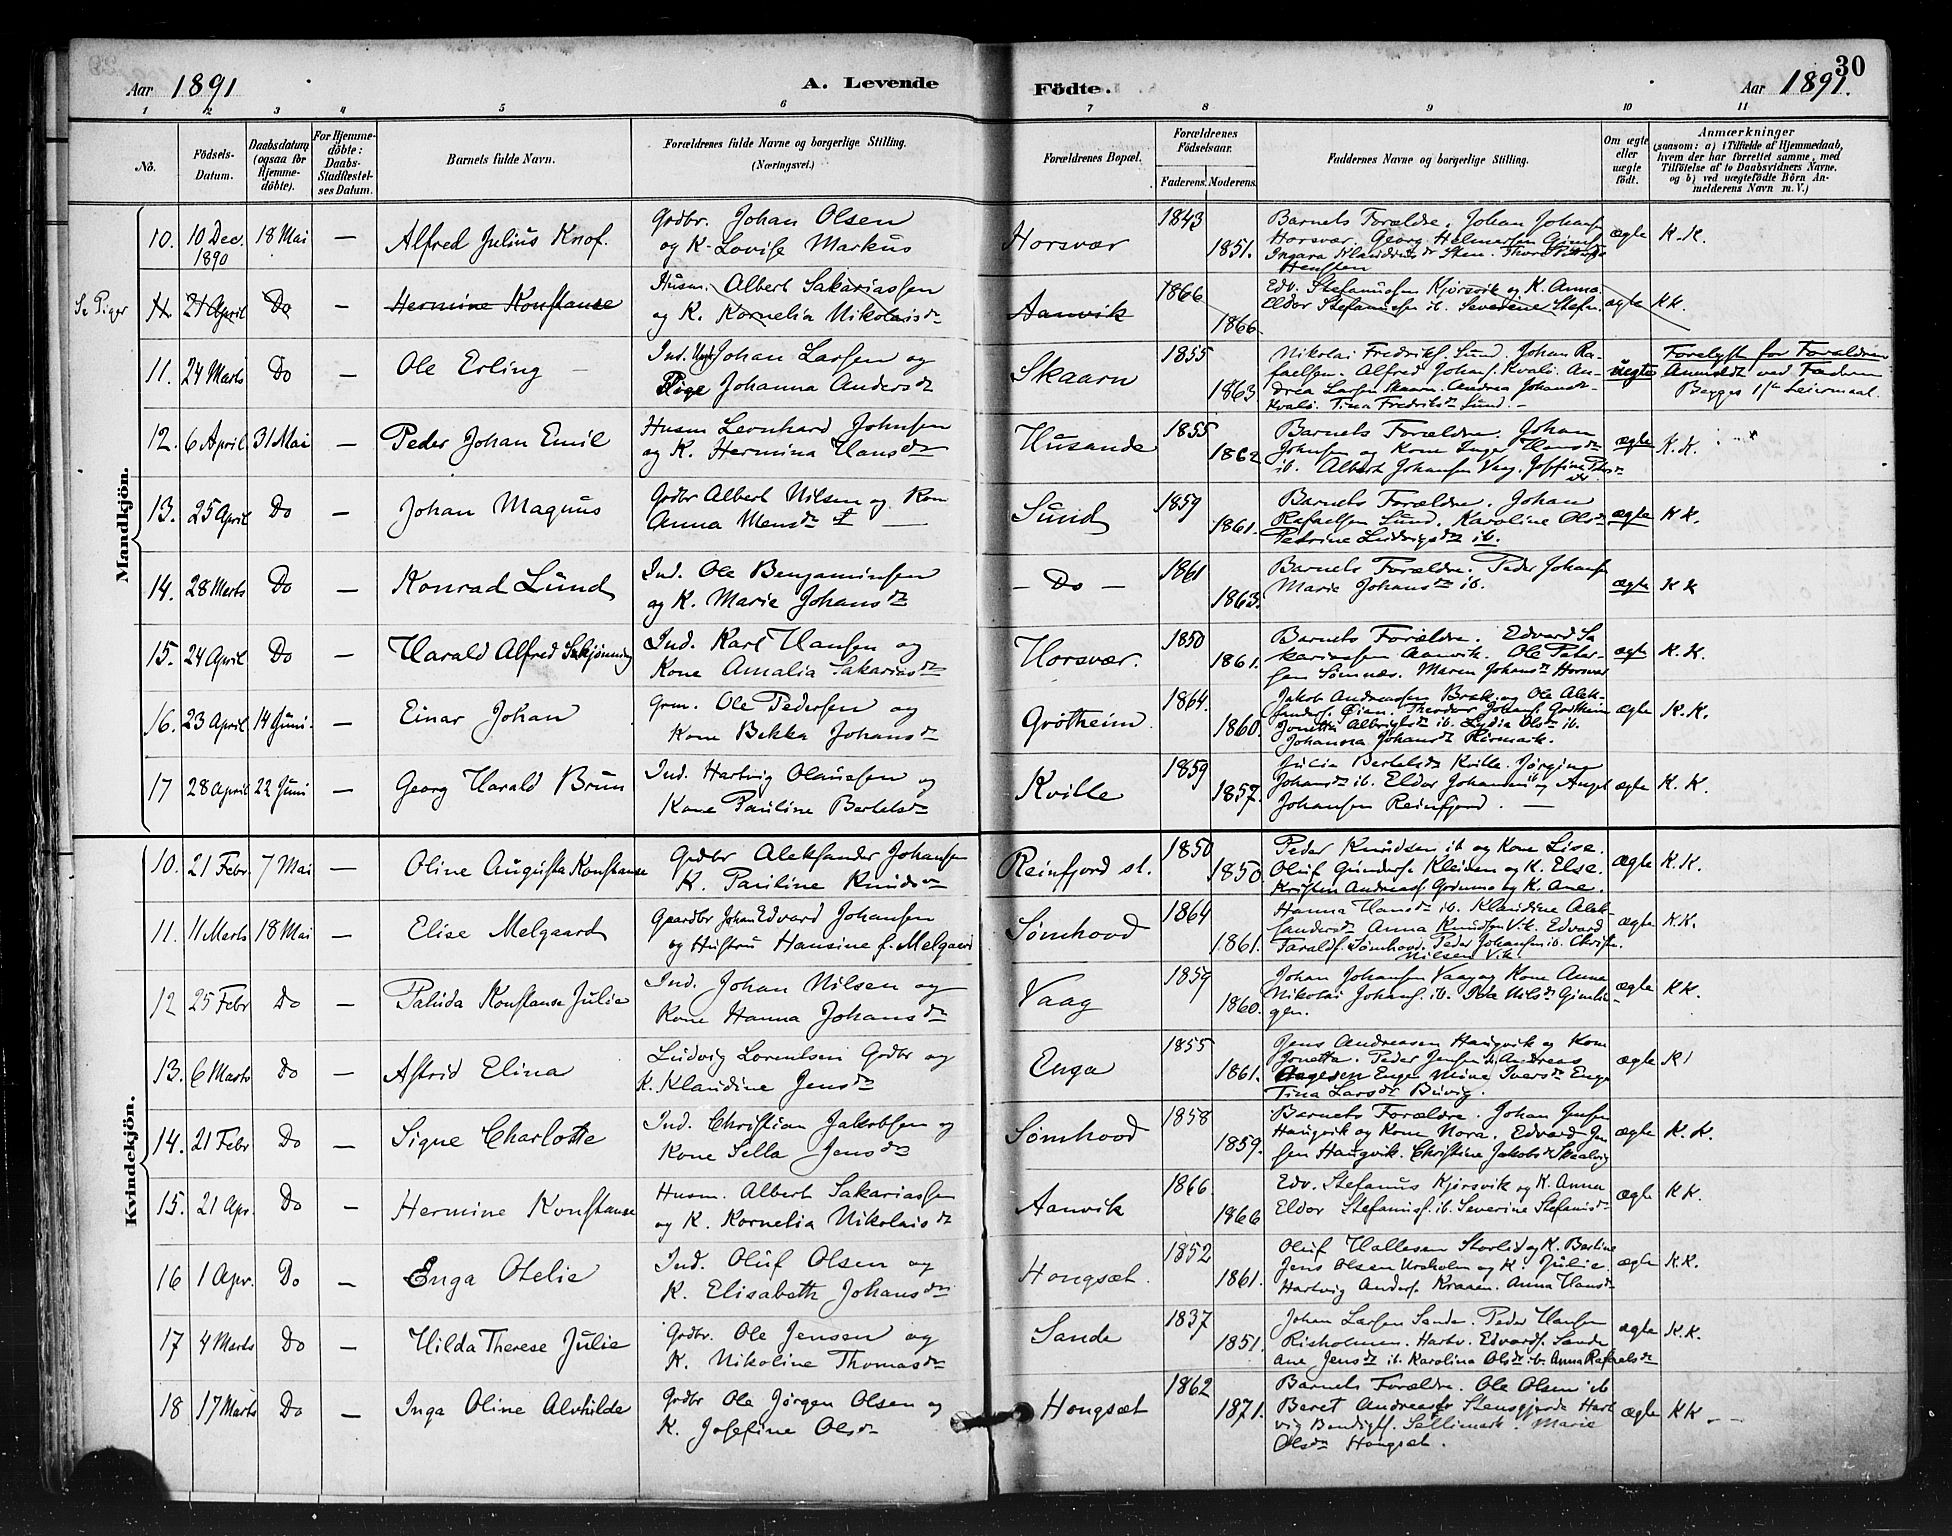 30
Aar 1891
A. Levende
Födte.
Aar 1891.
1 2 3 4 5 6 7 8 9 10 11
No.
Födsels-
Datum.
Daabsdatum
(ogsaa for
Hjemme-
döbte).
For Hjemme-
döbte:
Daabs-
Stadfæstel-
ses Datum.
Barnets fulde Navn.
Forældrenes fulde Navne og borgerlige Stilling.
(Næringsvei.)
Forældrenes Bopæl.
Forældrenes
Födselsaar.
Faderens. Moderens.
Faddernes Navne og borgerlige Stilling.
Om ægte
eller
uægte
födt.
Anmærkninger
(saasom: a) i Tilfælde af Hjemmedaab,
hvem der har forrettet samme, med
Tilföielse af to Daabsvidners Navne,
og b) ved uægtefödte Börn An-
melderens Navn m. V.)
Mandkjön.
10. 10 Dec. 1890 18 Mai — Alfred Julius Knof.
Grdbr. Johan Olsen
og K. Lovise Markus
Horsvær 1843 1851.
Barnets Forældre. Johan Johans
Horsvær. Georg Helmersen
ægte K.K.
Se Piger
11. 21 April Do — Hermine Konstanse
Husm. Albert Sakariassen
og K. Kornelia Nikolaisdr
Aanvik 1866 1866
Edv. Stefanussen Kjørsvik og K. Anna
Eldor Stefanussen ib. Severine Stefan.
ægte KK.
11. 24 Marts Do — Ole Erling
Ind. Ungk Johan Larsen og
Pige Johanna Andersdr
Skaarn 1855 1863
Nikolai Fredriks. Sund. Johan Ra-
faelsen. Alfred Johans. Kvalö. An-
drea Larsen Skaarn. Andrea Johansdr
Kvalö. Tina Fredriksdr Sund. —
uægte
Forelyst for Forældren
Anmeldt ved Faderen
Begges 1ste Leiermaal.
12. 6 April 31 Mai — Peder Johan Emil
Husm Leonhard Johnsen
og K. Hermina Hansdr
Husande 1855 1862
Barnets Forældre. Johan
Johnsen og Kone Inger Hansdr
ib. Albert Johansen Vaag.
ægte K.K.
13. 25 April Do — Johan Magnus
Grdbr Albert Nilsen og Kon
Anna Monsdr
Sund 1859 1861.
Barnets Forældre. Johan
Rafaelsen Sund. Karoline Olsdr
Petrine Ludvigsdr ib.
ægte KK.
14. 28 Marts Do — Konrad Lund
Ind. Ole Benjaminsen
og K. Marie Johansdr
— Do — 1861 1863.
Barnets Forældre. Peder Johans
Marie Johansdr ib.
ægte KK
15. 24 April Do — Harald Alfred
Ind. Karl Hansen og
Kone Amalia Sakariasdr
Horsvær. 1850 1861.
Barnets Forældre. Edvard Sa
kariassen Aanvik. Ole Peter-
sen Sømnæs. Maren Johansdr Horsvær
ægt K.K.
16. 23 April 14 Juni. — Einar Johan
Grm. Ole Pedersen og
Kone Bekka Johansdr
Grötheim 1864. 1860.
Jakob Andreassen Bræk. og Ole Alek-
sanders. Øien. Theodor Johans. Grötheim
Jonetta Albrigtsdr ib. Lydia Olsdr ib.
Johanna Johansdr
ægte K.K.
17 28 April 22 Juni — Georg Harald Brun
Ind. Hartvig Olaussen og
Kone Pauline Bertelsdr
Kville 1859 1857.
Julia Bertelsdr Kville. Jørgine
Johansdr ib. Eldor Johansen ib og
Johansen Reinfjord. —
ægte K.K.
Kvindekjön.
10. 21 Febr. 7 Mai — Oline Augusta Konstanse
Grdbr Aleksander Johansen
K. Pauline Knudsdr
Reinfjord st. 1850 1850
Peder Knudsen ib og Kone Lise.
Oluf Gunders. Kleiden og K. Else.
Kristen Andreass. og K. Ane.
ægte K.K.
11. 11 Marts 18 Mai — Elise Melgaard
Gaardbr Johan Edvard Johansen
og Hustru Hansine f. Melgaard
Sømhovd 1864 1861.
Hanna Hansdr ib. Klaudine Alek-
sandersdr Anna Knudsen Vik. Edvard
Taralds. Sømhovd. Peder Johansen ib. Christ.
Nilsen Vik.
ægte KK.
12 25 Febr Do — Palida Konstanse Julia
Ind. Johan Nilsen og
Kone Hanna Johansdr
Vaag 1859 1860.
Johan Johansen Vaag og Kone Anna
Nikolai Johans. ib. Nilsdr
gen.
ægte KK.
13. 6 Marts Do — Astrid Elina
Ludvig Lorentsen Grdbr og
K. Klaudine Jensdr
Enga 1855 1861.
Jens Andreasen Haugvik og Kone
Jonetta. Peder Jensen ib. Andreas
Aagesen Enge Mine Iversdr Enge
Tina Larsdr
ægte K
14. 21 Febr Do — Signe Charlotte
Ind. Christian Jakobsen og
Kone Sella Jensdr
Sømhovd 1858 1859.
Barnets Forældre. Johan Jensen
Haugvik og Kone Nora. Edvard Jen
sen Haugvik. Christine Jakobsdr
ægte K.K.
15. 21 Apr. Do — Hermine Konstanse
Husm. Albert Sakariassen
og K. Kornelia Nikolaisdr
Aanvik 1866. 1866
Edv. Stefanus Kjørsvik og K. Anna
Eldor Stefanuss. ib. Severine Stefansdr
ægte KK.
16 1 Apr. Do — Enga Otelie
Ind. Oluf Olsen og
K. Elisabeth Johansdr
Hongsæt. 1852 1861.
Oluf Hallesen Storlid og K. Bertine
Jens Olsen Urholm og K. Julie.
Hartvig Anders. Kraaen. Anna Hansdr
ægte K.K.
17 4 Marts Do — Hilda Therese Julie
Grdbr. Ole Jensen og
K. Nikoline Thomasdr
Sande 1837 1851.
Johan Larsen Sande. Peder Hansen
Risholmen. Hartv. Edvards. Sande
Ane Jensdr ib. Karolina Olsdr ib. Anna Rafaelsdr
ægte K.K.
18 17 Marts Do — Inga Oline Alvhilde
Grdbr Ole Jørgen Olsen og
K. Josefine Olsdr
Hongsæt 1862 1871.
Barnets Forældre. Ole Olsen ib
Beret Andreasdr Stensgjerde Hart
vig Bendigts. Sellimark. Marie
Olsdr Hongsæt.
ægte KK.